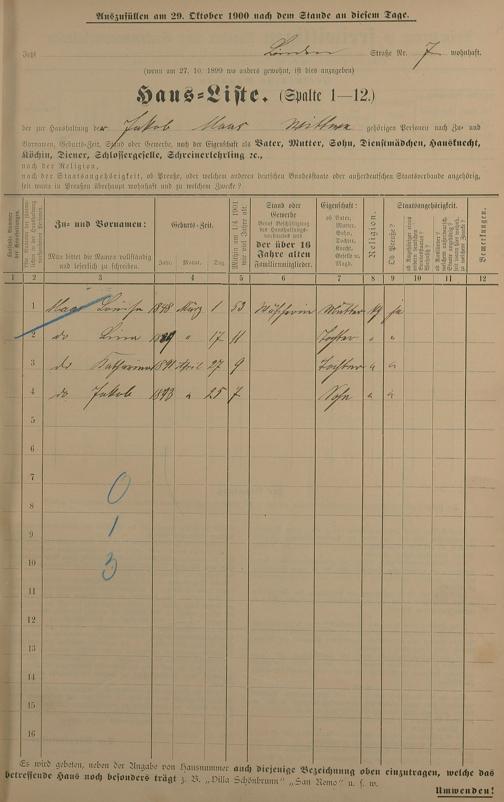 Auszufüllen am 29. Oktober 1900 nach dem Stande an diesem Tage.
Jetzt Linden Straße Nr. 7 wohnhaft.
(wenn am 27. 10. 1899 wo anders gewohnt, ist dies anzugeben)
Haus=Liste. (Spalte 1—12.)
der zur Haushaltung der Jakob Maas Wittwe gehörigen Personen nach Zu= und
Vornamen, Geburts=Zeit, Stand oder Gewerbe, nach der Eigenschaft als Vater, Mutter, Sohn, Dienstmädchen, Hausknecht,
Köchin, Diener, Schlossergeselle, Schreinerlehrling ec.,
nach der Religion,
nach der Staatsangehörigkeit, ob Preuße, oder welchem anderen deutschen Bundesstaate oder außerdeutschen Staatsverbande angehörig,
seit wann in Preußen überhaupt wohnhaft und zu welchem Zwecke?
Zu= und Vornamen:
Man bittet die Namen vollständig und leserlich zu schreiben.
Geburts=Zeit.
Jahr. Monat. Tag
Mithin am 1/4 1901 wie viel Jahre alt.
Stand oder Gewerbe
der über 16 Jahre alten Familienmitglieder.
Eigenschaft:
ob Vater, Mutter, Sohn, Tochter, Knecht, Geselle u. Magd.
Religion.
Staatsangehörigkeit.
Ob Preuße?
Bemerkungen.
1 2 3 4 5 6 7 8 9 10 11 12
1 Maas Louise 1848 März 1 53 Mutter ja
2 do Lina 17 11 Tochter " "
3 do Katharina 1891 April 27 9 Tochter " "
4 do Jakob 1893 " 25 7 Sohn " "
5
6
7
0
8
9
1
10
3
11
12
13
14
15
16
Es wird gebeten, neben der Angabe von Hausnummer auch diejenige Bezeichnung oben einzutragen, welche das
betreffende Haus noch besonders trägt z. B. „Villa Schönbrunn" „San Remo" u. s. w.
Umwenden!